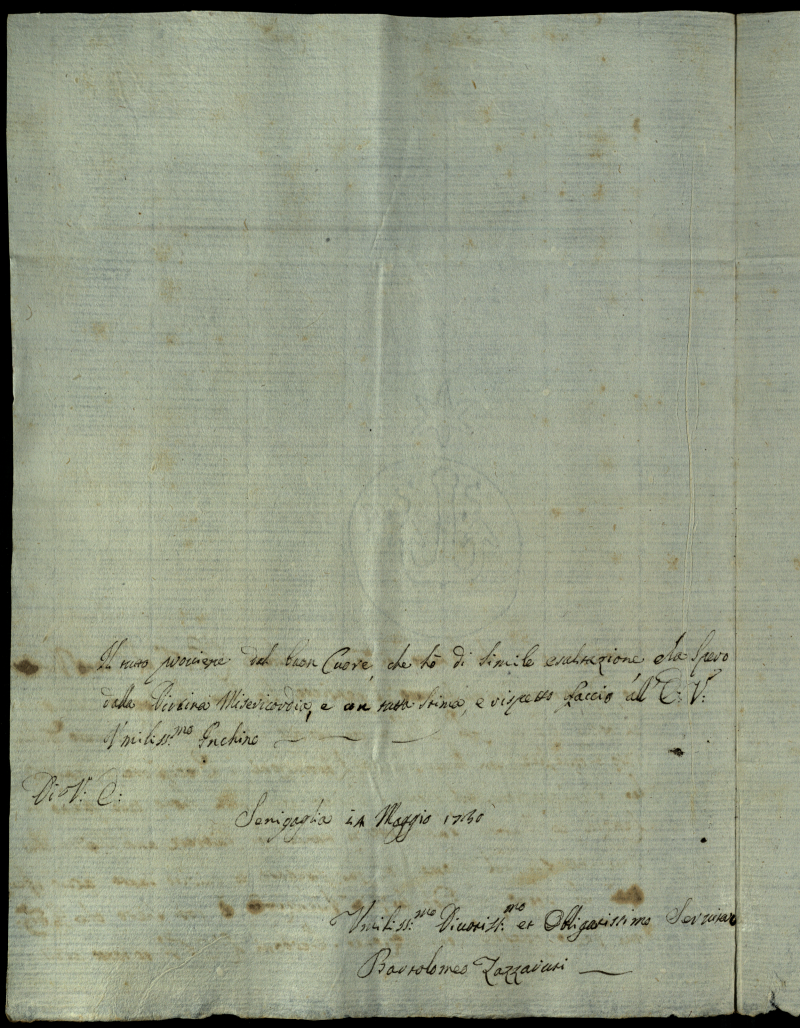 Il tutto proviene dal buon Cuore, che hò di simile esaltazione, e la Spero
dalla Divina Misericordia, e con tutta stima, e rispetto faccio all' E: V:
Umiliss:mo Inchino
Di V: E:
Senigaglia 24 Maggio 1730
Umiliss:mo Divotiss:mo et Obligatissimo Servitor
Bartolomeo